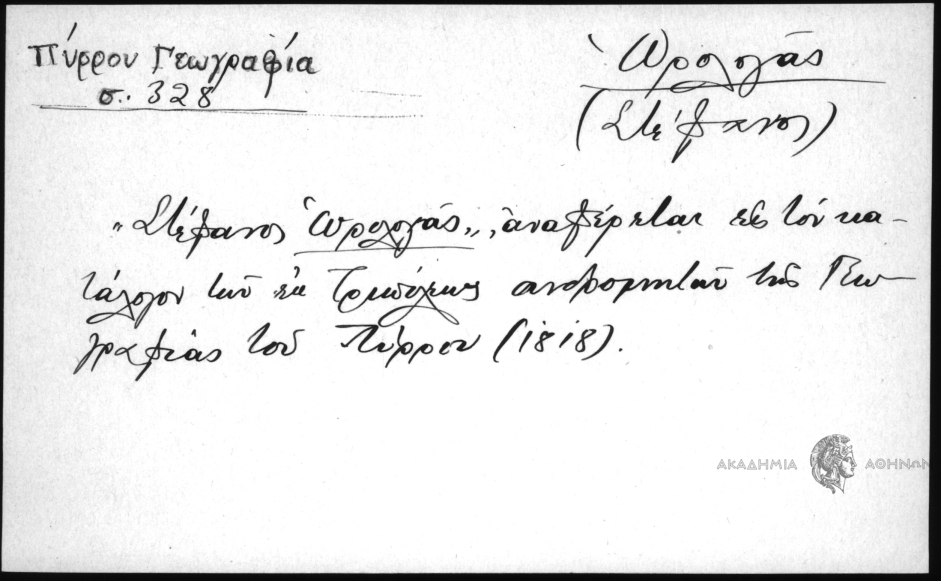 Πύρρου Γεωγραφία
σ. 328
Ὡρολογᾶς
(Στέφανος)
„Στέφανος Ὡρολογᾶς„, ἀναφέρεται εἰς τὸν κα-
τάλογον τῶν ἐκ Τριπόλεως συνδρομητῶν τῆς Γεω-
γραφίας τοῦ Πύρρου (1818).
ΑΚΑΔΗΜΙΑ ΑΘΗΝΩΝ